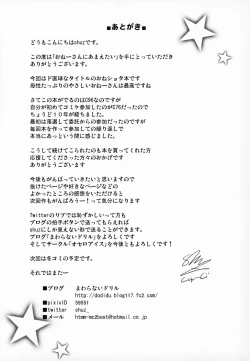 ■あとがき■
どうもこんにちはshuzです。
この度は「おねーさんにあまえたい」を手にとっていただき
ありがとうございます。
今回はド直球なタイトルのおねショタ本です
母性たっぷりのやさしいおねーさんは最高ですね
さてこの本がでるのはC96なのですが
自分が初めてコミケ参加したのがC76だったので
ちょうど10年が経ちました。
最初は落選して委託からの参加だったのですが
毎回本を作って参加しての繰り返しで
本当にあっという間に感じました。
こうして続けてこられたのも本を買ってくれた方
応援してくださった方々のおかげです
ありがとうございます!
今後もがんばっていきたいと思いますので
抜けたページや好きなページなどの
よかったところの感想をいただけると
次回作もがんばろうー!って気分になります
Twitterのリプでは恥ずかしいっって方も
ブログの拍手ボタンで送ってもらえれば
shuzにしか見えない形で送ることができます。
ブログ「まわらないドリル」をよろしくです
そしてサークル「オセロアイス」を今後ともよろしくです!
次回は冬コミの予定です。
それではまたー
■ブログ まわらないドリル
http://dodidu.blog117.fc2.com/
■pixivID 59551
■twitter shuz_
■メール htmm-mc2beat@hotmail.co.jp